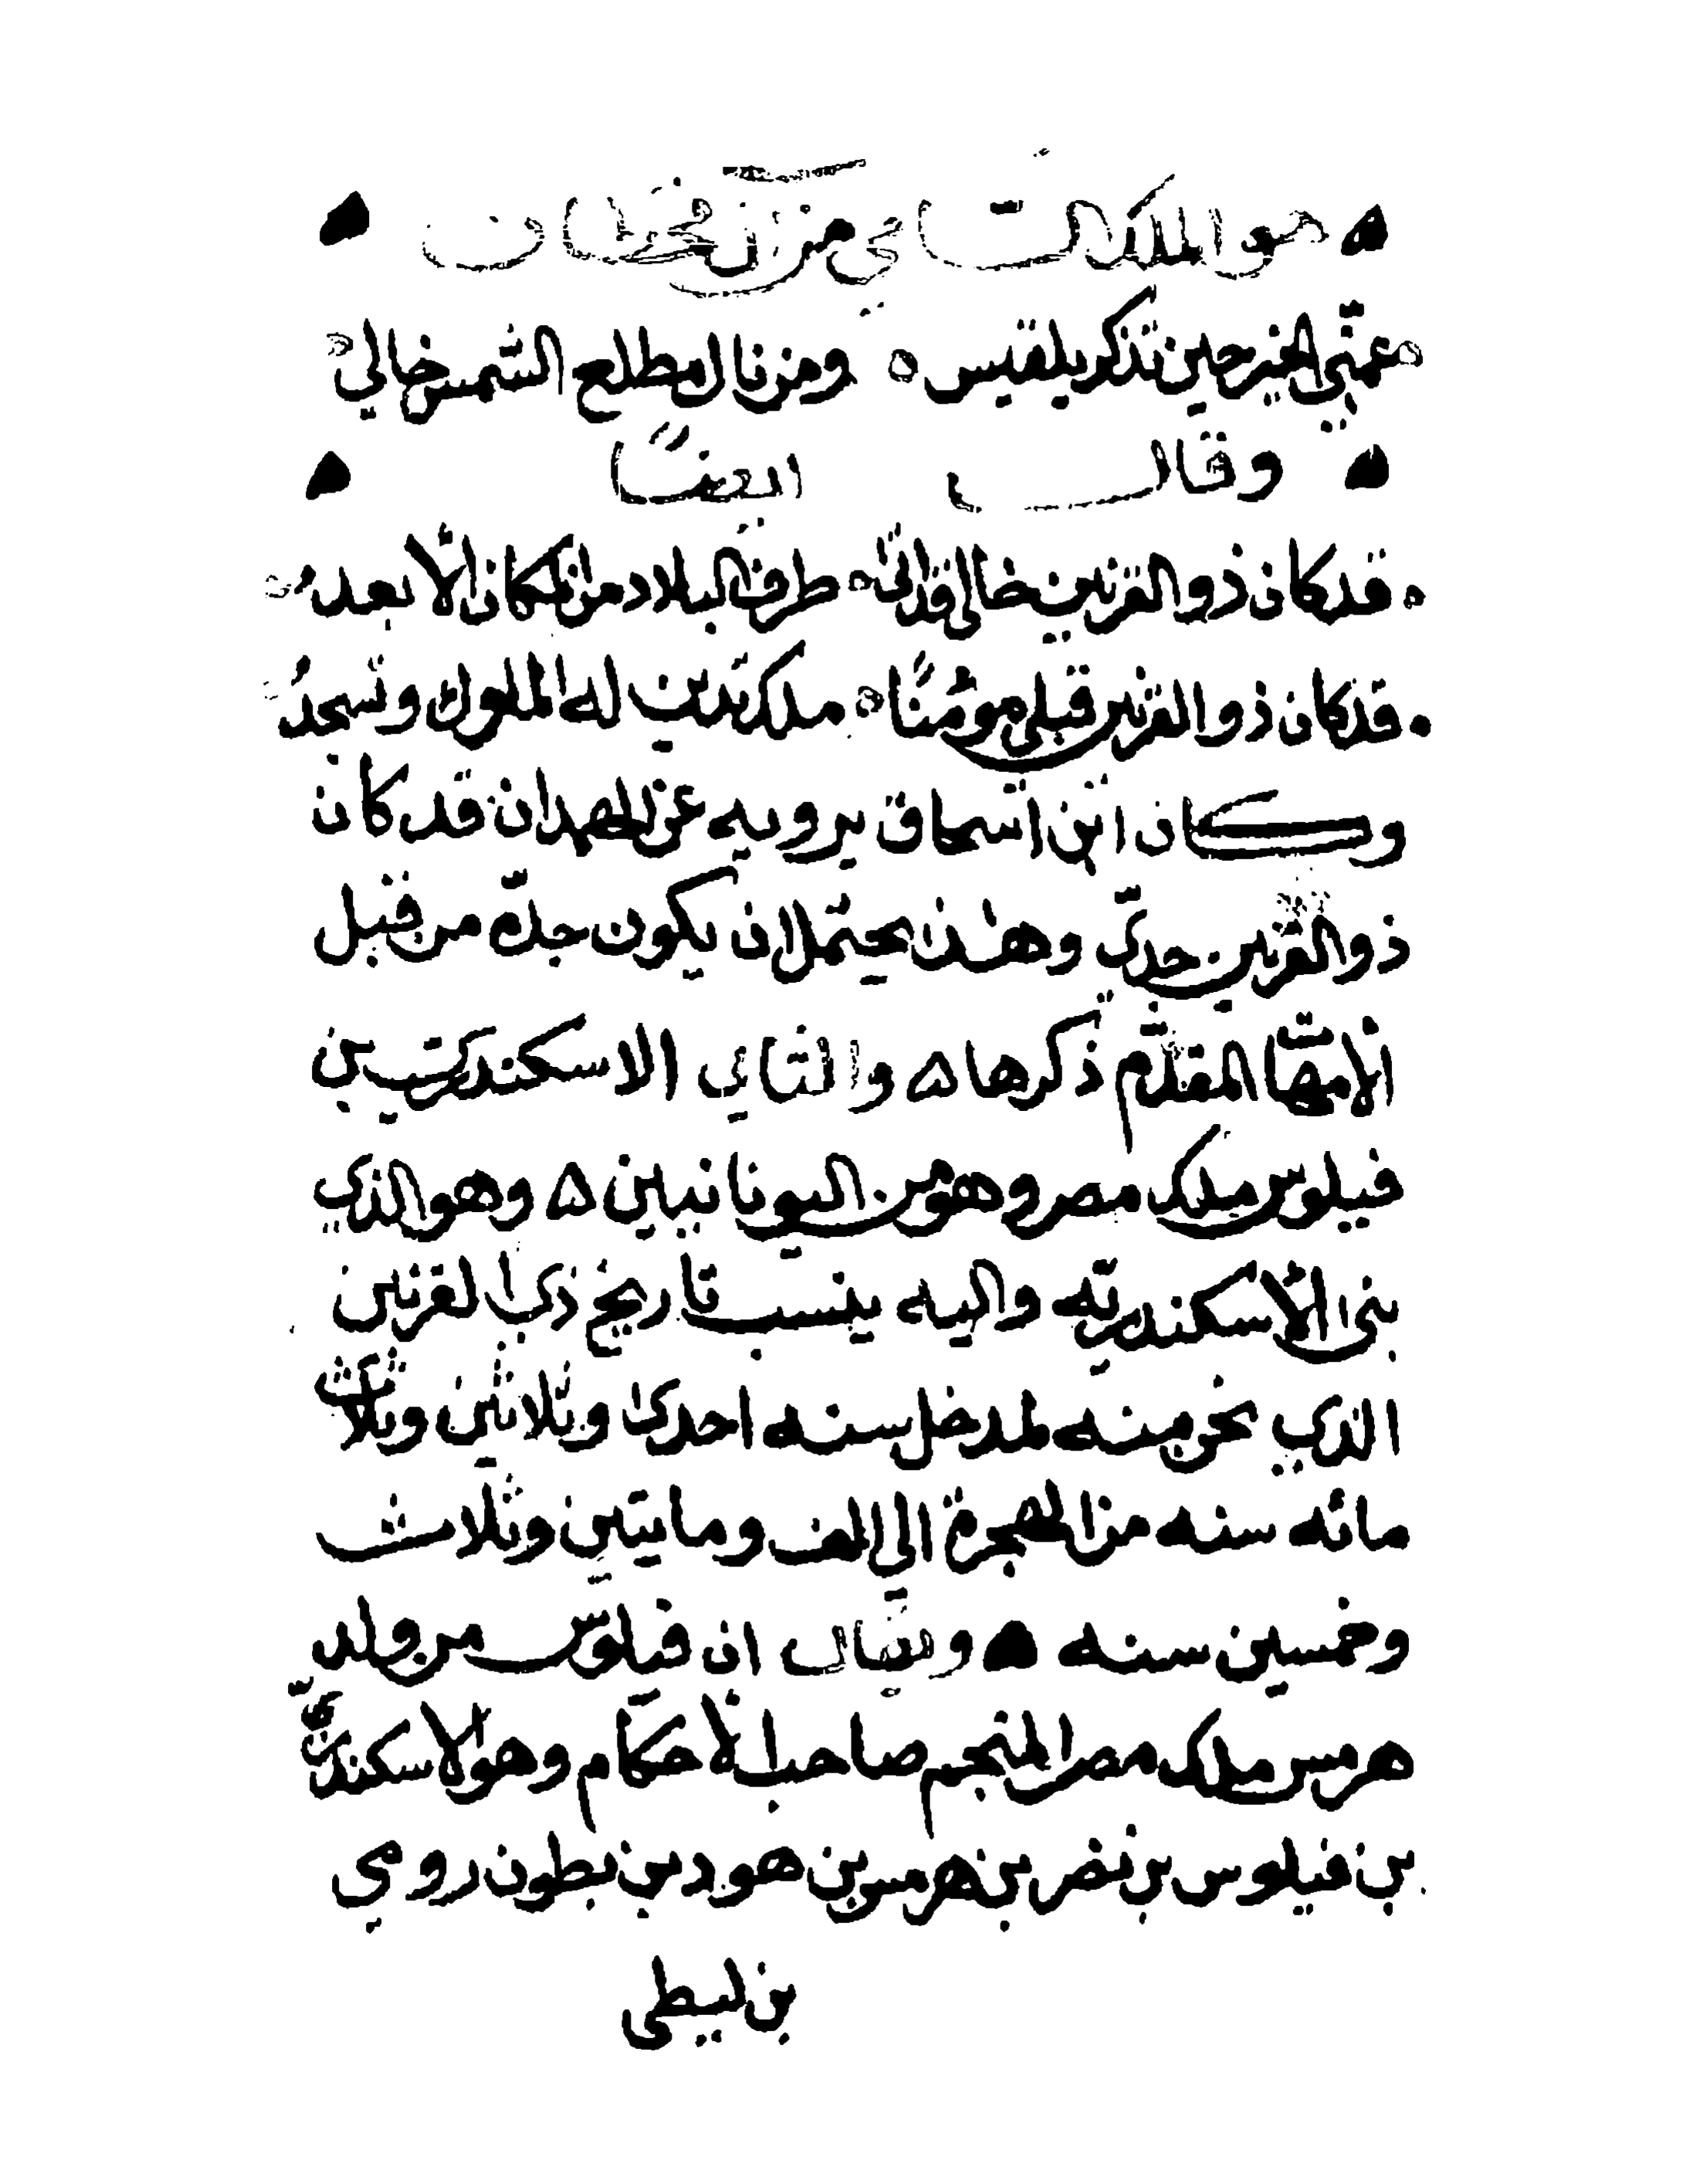 هو الملك الثاني من آل قحطان
عمتي الخير حين تذكر بلقيس ٥ ومن نال مطلع الشمس خالي
وقال ايضًا
قد كان ذو القرنين خالي قد اتى ٥ طرف البلاد من المكان الأبعد
قد كان ذو القرنين قبلي مؤمنًا ٥ ملك تدين له الملوك وتسجد
وكان ابن اسحاق يرويه عن الهمدان قد كان
ذو القرنين جدّي وهذا يحتمل ان يكون جدّه من قبل
الأمهات المقدّم ذكرها ۵ والثاني الاسكندر بن
فيلوس ملك مصر وهو من اليونانيين ۵ وهو الذي
بنى الأسكندريّه واليه ينسب تاريخ ذي القرنين
الذي نحن منه لمدخل سنه احدى وثلاثين وثلاث
مائه سنه من الهجرة الى الف ومايتين وثلاث
وخمسين سنه ۵ ويقال ان فيلوس من ولد
هرمس ملك مصر المنجم صاحب الأحكام وهو الاسكندر
بن فيلوس بن نضر بن هرمس بن هود بن بطون رومي
بن ليطى